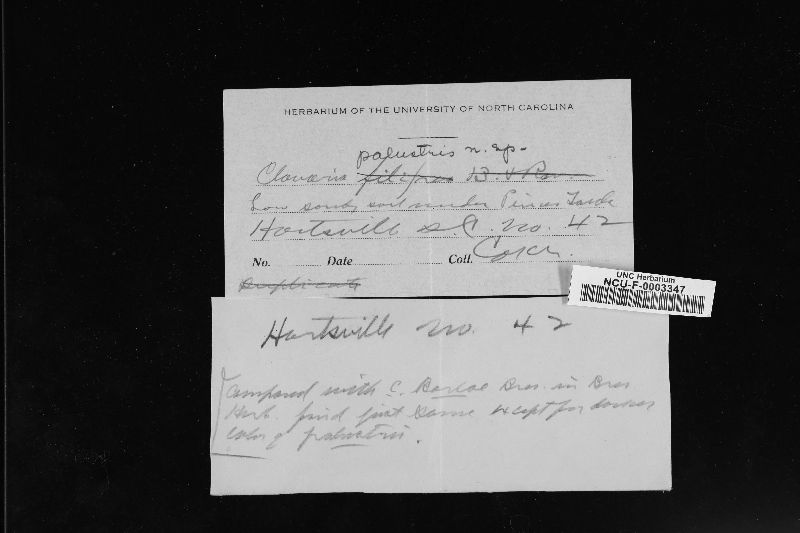 HERBARIUM OF THE UNIVERSITY OF NORTH CAROLINA
palustris n. sp.
Clavaria filipes B. & Rav
Low sandy soil under Pinus Taeda
Hartsville S C. No. 42
No. Date Coll. Coker.
Duplicate
UNC Herbarium
NCU-F-0003347
Hartsville No. 42
Compared with C. Bres. in Bres
Herb. find just same except for darker
color of palustris.